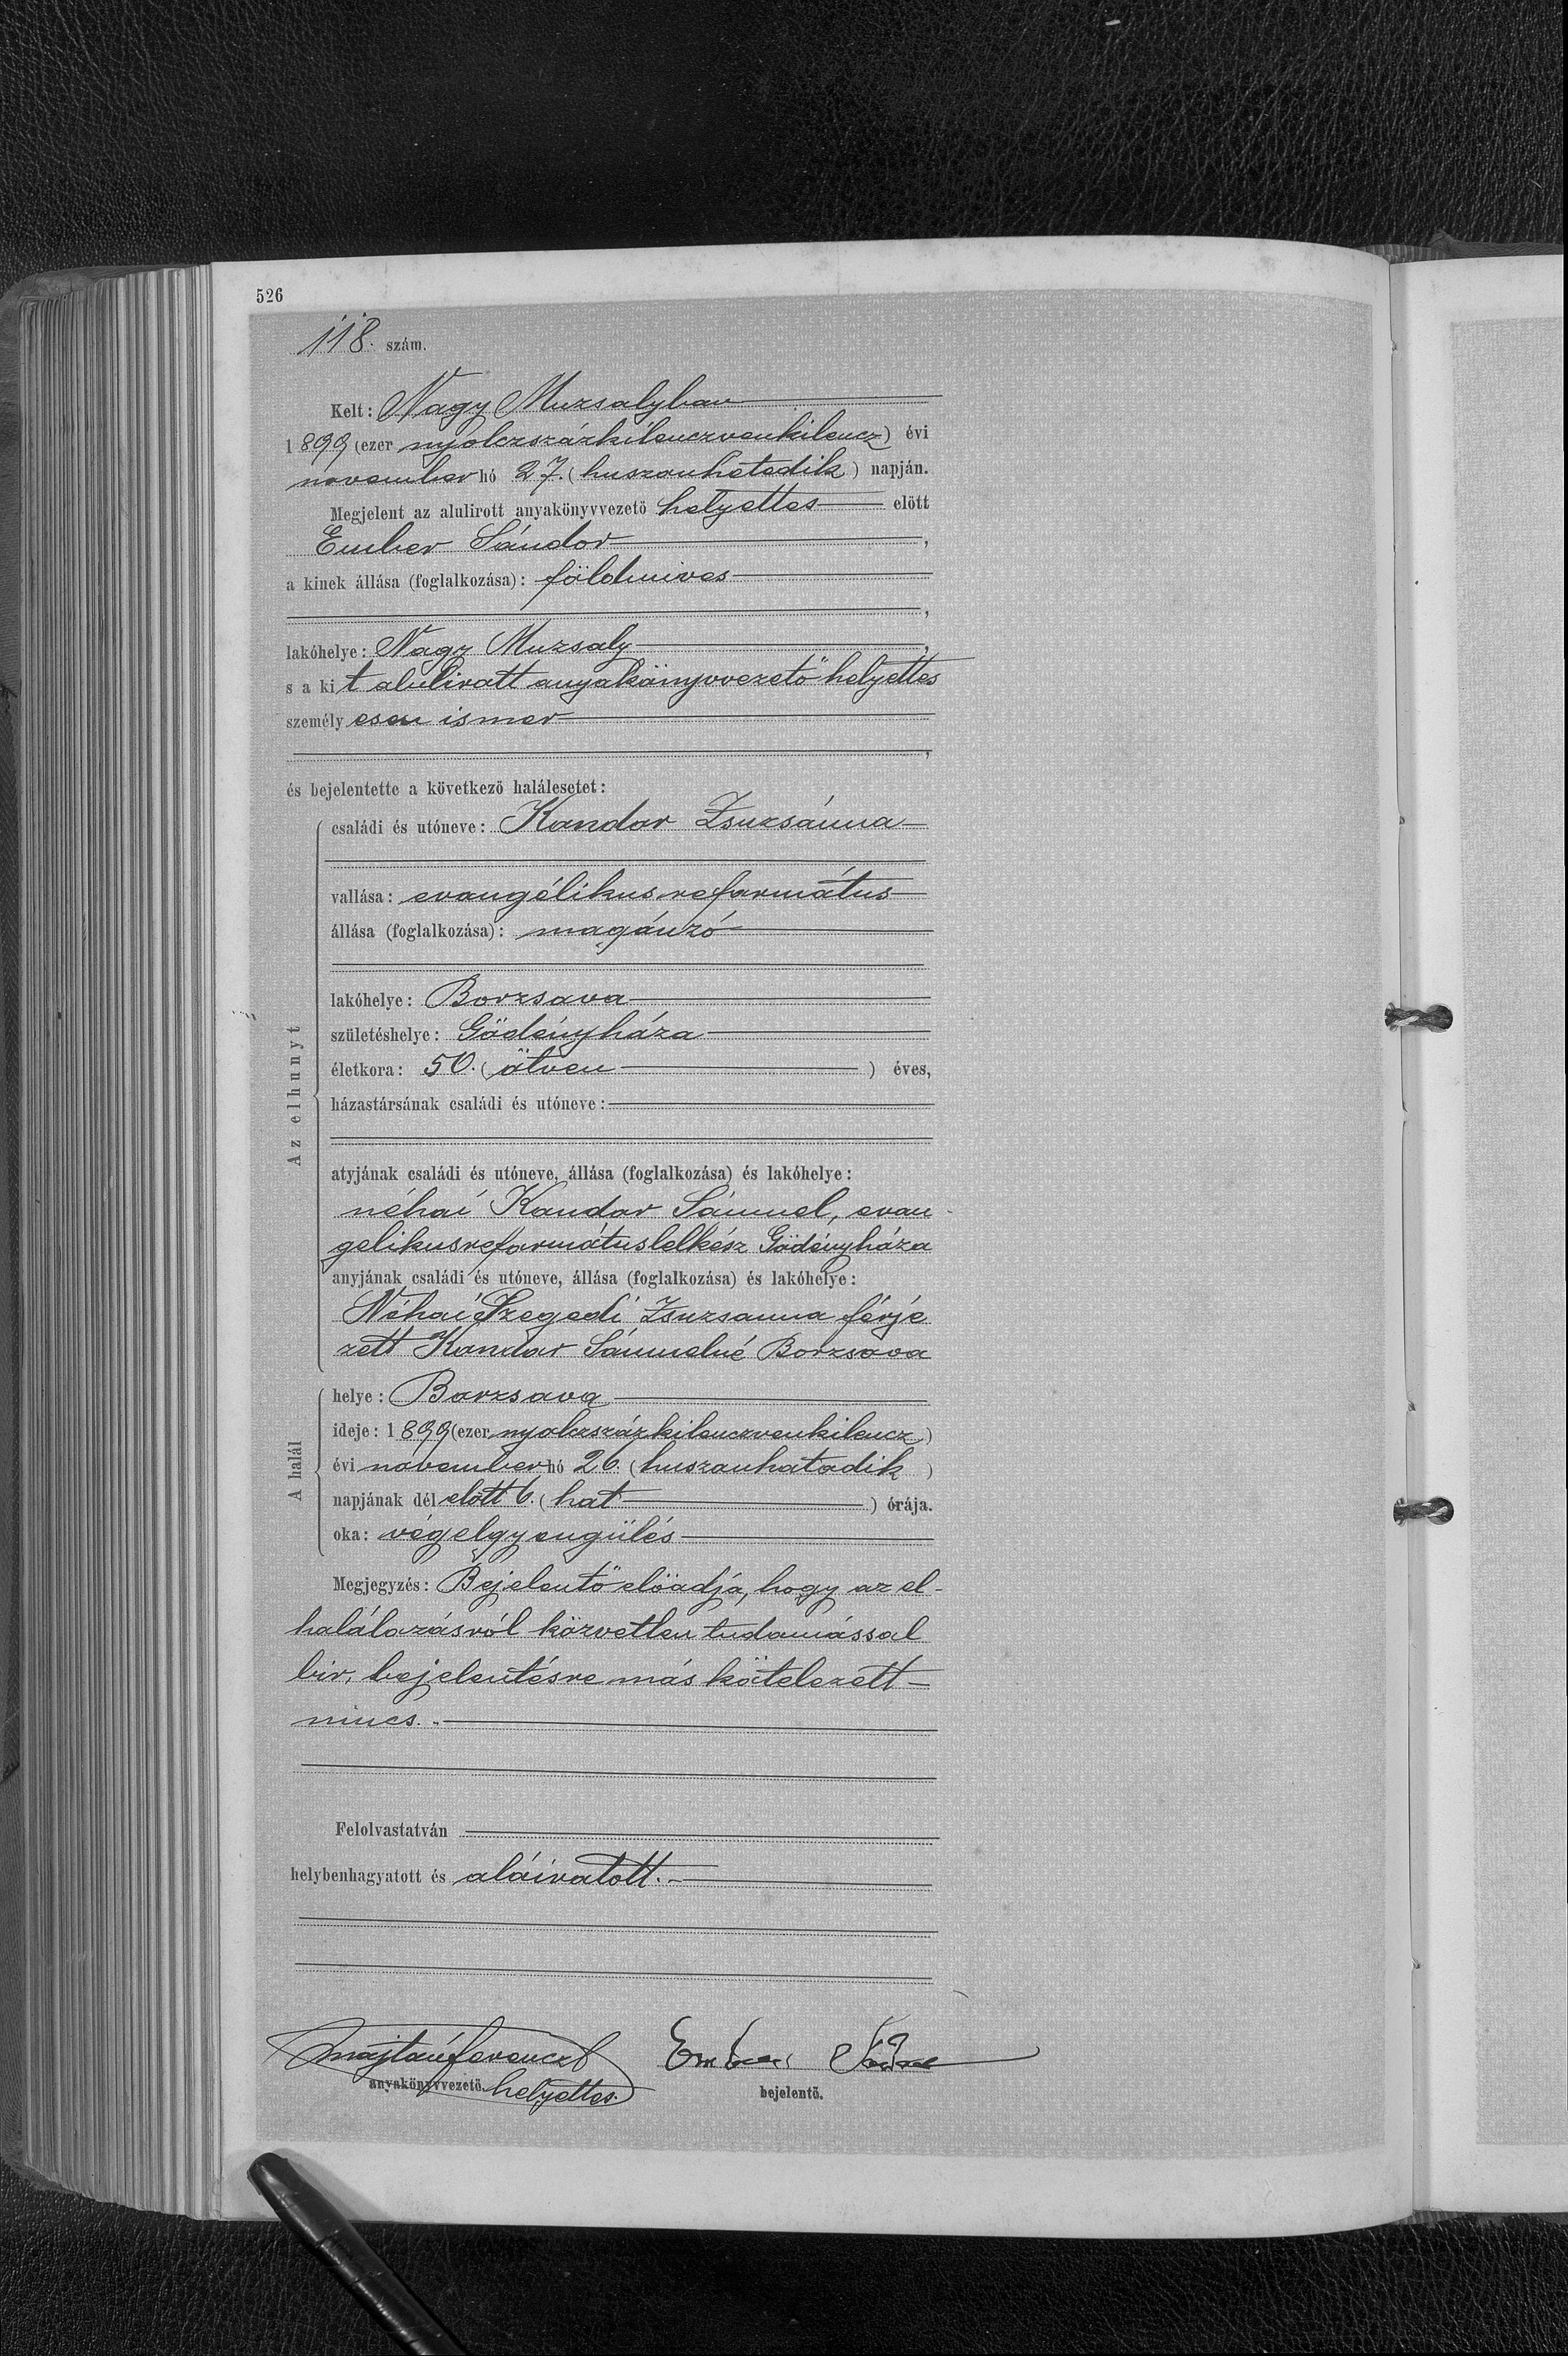 526
118. szám.
Kelt: Nagy Muzsalyban
1899 (ezer nyolczszázkilenczvenkilencz) évi
november hó 27. (huszonhetedik) napján.
Megjelent az alulirott anyakönyvvezető helyettes előtt
Ember Sándor,
a kinek állása (foglalkozása): földmives
,
lakóhelye: Nagy Muzsaly,
s a kit alulirott anyakönyvvezető helyettes
személyesen ismer
,
és bejelentette a következő halálesetet:
Az elhunyt
családi és utóneve: Kandor Zsuzsánna
vallása: evangélikus református
állása (foglalkozása): magánzó
lakóhelye: Borzsava
születéshelye: Gödényháza
életkora: 50. (ötven) éves,
házastársának családi és utóneve:
atyjának családi és utóneve, állása (foglalkozása) és lakóhelye:
néhai Kandor Sámuel, evan-
gelikusreformátuslelkész Gödényháza
anyjának családi és utóneve, állása (foglalkozása) és lakóhelye:
Néhai Szegedi Zsuzsanna férje
zett Kandor Sámuelné Borzsova
A halál
helye: Borzsava
ideje: 1899 (ezer nyolczszázkilenczvenkilencz)
évi november hó 26 (huszonhatodik)
napjának dél előtt 6. (hat) órája.
oka: végelgyengülés
Megjegyzés: Bejelentő előadja, hogy az el-
halálozásról közvetlen tudomással
bir, bejelentésre más kötelezett
nincs.
Felolvastatván
helybenhagyatott és aláiratott.
Majtán Ferencz Ember Sándor
anyakönyvvezető. helyettes. bejelentő.